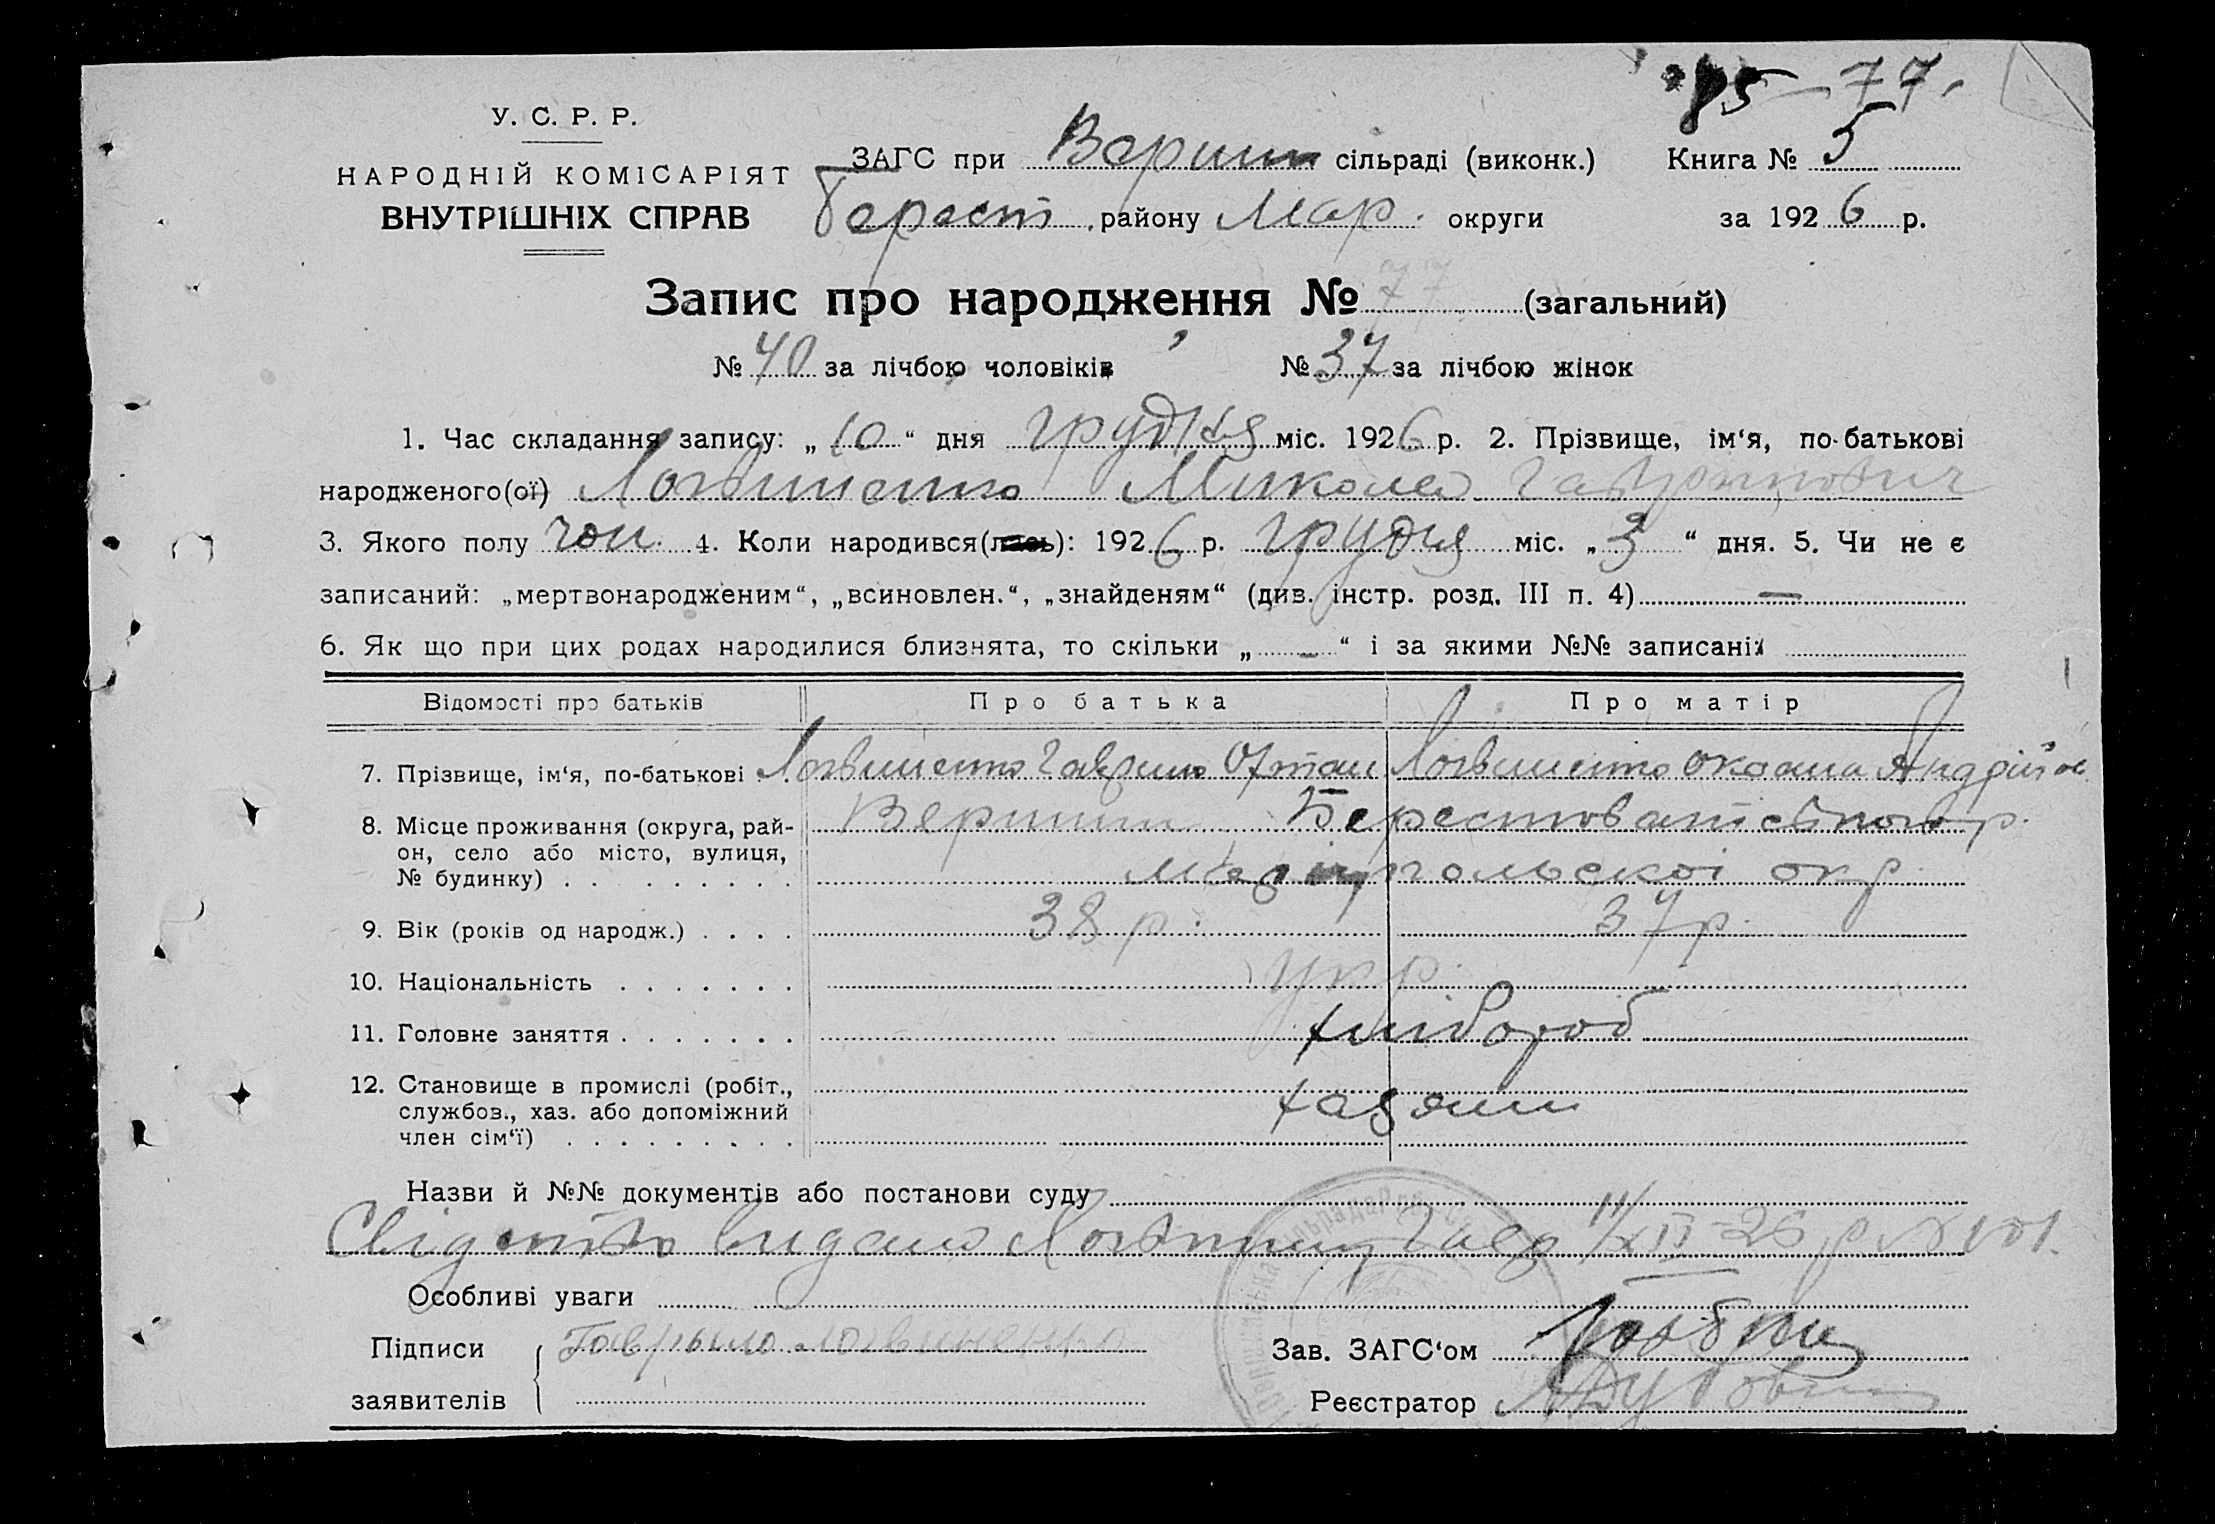 85 — 77.
У. С. Р. Р.
НАРОДНІЙ КОМІСАРІЯТ
ВНУТРІШНІХ СПРАВ
ЗАГС при Вершин сільраді (виконк.) Книга № 5
Берест. району Мар. округи за 1926 р.
Запис про народження № 77 (загальний)
№ 40 за лічбою чоловіків № 37 за лічбою жінок
1. Час складання запису: „10“ дня грудня міс. 1926 р. 2. Прізвище, ім‘я, по-батькові
народженого(ої) Логвиненко Микола Гаврилович
3. Якого полу чол. 4. Коли народився(лась): 1926 р. грудня міс. „3“ дня. 5. Чи не є
записаний: „мертвонародженим“, „всиновлен.“, „знайденям“ (див. інстр. розд. III п. 4) —
6. Як що при цих родах народилися близнята, то скільки „—“ і за якими №№ записані:
Відомості про батьків Про батька Про матір
7. Прізвище, ім‘я, по-батькові Логвиненко Гаврило Логвиненко Оксана Андрійов
8. Місце проживання (округа, рай-
он, село або місто, вулиця,
№ будинку) Вершини Берестоватського р.
Маріупольскої окр
9. Вік (років од народж.) 38 р. 37 р.
10. Національність укр.
11. Головне заняття хлібороб
12. Становище в промислі (робіт.,
службов., хаз. або допоміжний
член сім‘ї) хазяин
Назви й №№ документів або постанови суду
Свідоцтво видано Логвиненку Гавр 11/XII-26 р № 101.
Особливі уваги
Підписи Гаврыло Логвиненко Зав. ЗАГС‘ом
заявителів Реєстратор